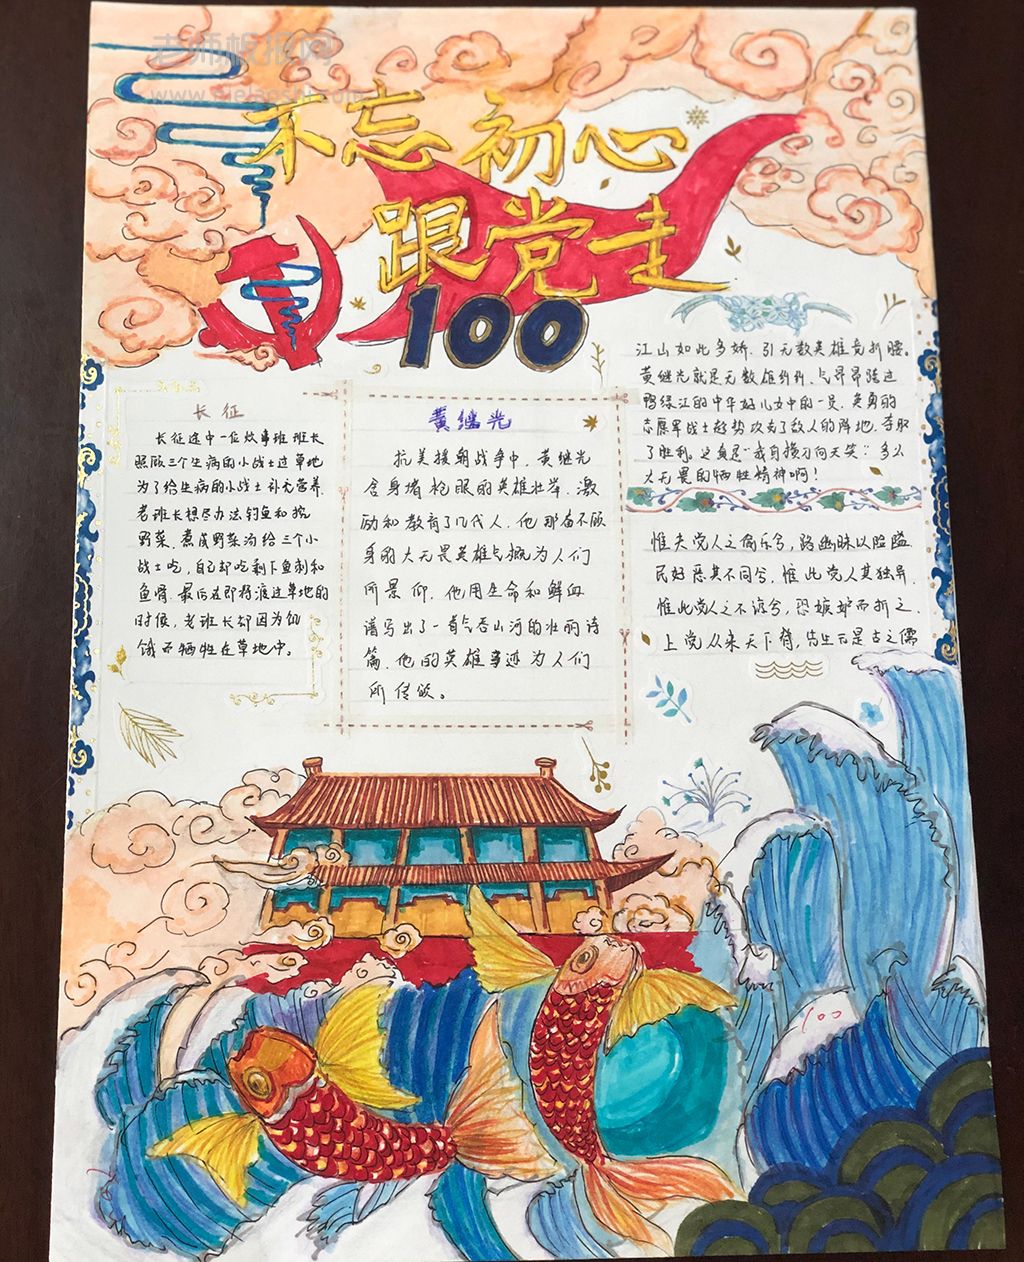 老师板报网
www.mielaoshi.com
不忘初心
跟党走
100
长征
长征途中一位炊事班班长
照顾三个生病的小战士过草地
为了给生病的小战士补充营养.
老班长想尽办法钓鱼和挖
野菜.煮成野菜汤给三个小
战士吃,自己却吃剩下鱼刺和
鱼骨.最后在即将渡过草地的
时候,老班长却因为饥
饿而牺牲在草地中。
黄继光
抗美援朝战争中,黄继光
舍身堵枪眼的英雄壮举.激
励和教育了几代人.他那奋不顾
身的大无畏英雄气概为人们
所景仰.他用生命和鲜血
谱写出了一首气吞山河的壮丽诗
篇.他的英雄事迹为人们
所传颂。
江山如此多娇.引无数英雄竞折腰。
黄继光就是无数雄纠纠.气昂昂跨过
鸭绿江的中华好儿女中的一员.英勇的
志愿军战士趁势攻占了敌人的阵地.夺取
了胜利.这真是"我自横刀向天笑":多么
大无畏的牺牲精神啊!
惟夫党人之偷乐兮,路幽昧以险隘
民好恶其不同兮,惟此党人其独异.
惟此党人之不谅兮,恐嫉妒而折之.
上党从来天下脊,先生元是古之儒
100